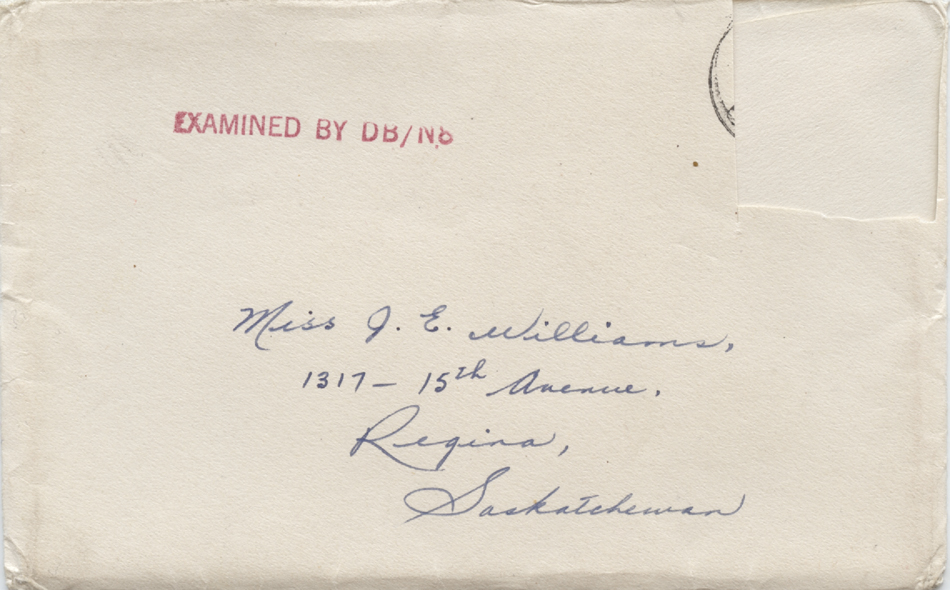 EXAMINED BY DB/N8
Miss J. E. Williams,
1317 - 15th Avenue.
Regina,
Saskatchewan